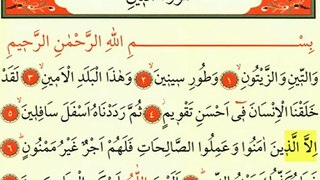 بِسْمِ اللهِ الرَّحْمٰنِ الرَّحِيمِ
وَالتِّينِ وَالزَّيْتُونِۙ ﴿١﴾ وَطُورِ سِينِينَۙ ﴿٢﴾ وَهٰذَا الْبَلَدِ الْاَمِينِۙ ﴿٣﴾ لَقَدْ
خَلَقْنَا الْاِنْسَانَ فِٓى اَحْسَنِ تَقْوِيمٍۘ ﴿٤﴾ ثُمَّ رَدَدْنَاهُ اَسْفَلَ سَافِلِينَۙ ﴿٥﴾
اِلَّا الَّذِينَ اٰمَنُوا وَعَمِلُوا الصَّالِحَاتِ فَلَهُمْ اَجْرٌ غَيْرُ مَمْنُونٍۜ ﴿٦﴾